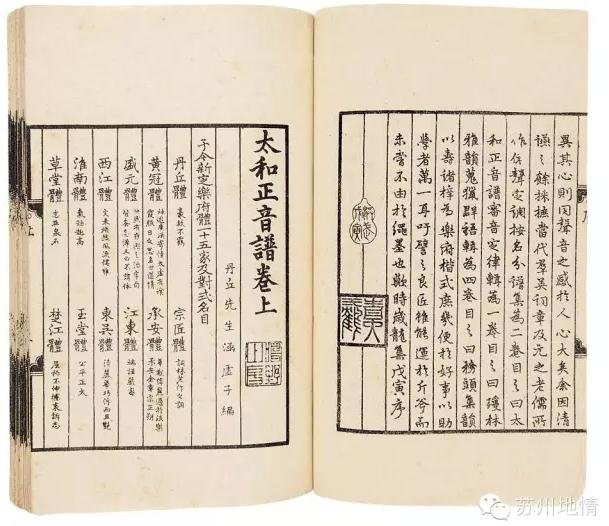 異其心則同聲音之感於人心大矣余因清
讌之餘採摭當代群英詞章及元之老儒所
作依聲定調按名分譜集為二卷目之曰太
和正音譜審音定律輯為一卷目之曰瓊林
雅韻蒐獵群語輯為四卷目之曰務頭集韻
以壽諸梓為樂府楷式庶幾便於好事以助
學者萬一耳吁譬之良匠雖能運於斤斧而
未嘗不由於繩墨也歟時歲龍集戊寅序
太和正音譜卷上
丹丘先生涵虛子編
予今新定樂府體一十五家及對式名目
丹丘體 豪放不羈 宗匠體 詞林老作之詞
黃冠體 神遊廣漠寄情太虛有餐霞服日之思名曰道情 承安體 華觀偉麗過於泆樂承安金章宗正朔
盛元體 快然有雍熙之治字句皆無忌憚又曰不諱體 江東體 端謹嚴密
西江體 文采煥然風流儒雅 東吳體 清麗華巧浮而且艷
淮南體 氣勁趣高 玉堂體 公平正大
草堂體 志在泉石 楚江體 屈抑不伸攄衷訴志
苏州地情